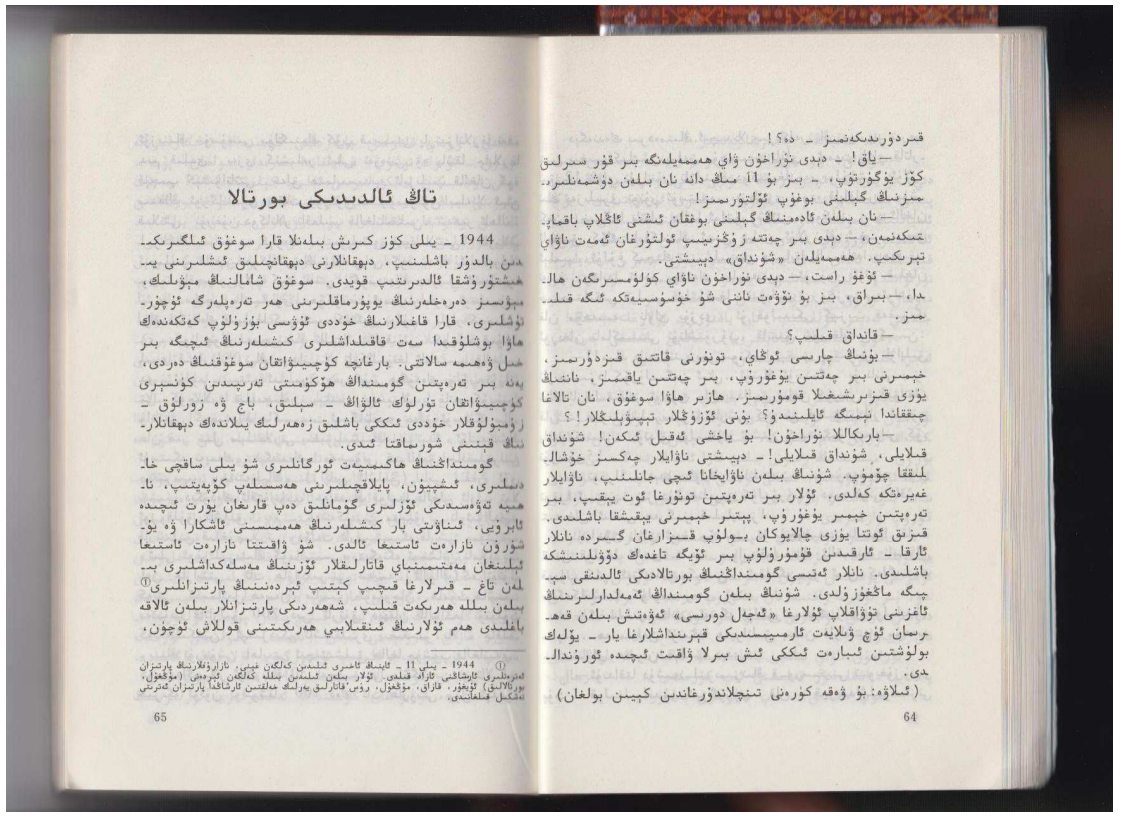 قىردۇرىدىكەنمىز - دە؟!
—ياق! - دېدى نۇراخۇن ۋاي ھەممەيلەنگە بىر قۇر سىرلىق
كۆز يۈگۈرتۈپ، - بىز بۇ 11 مىڭ دانە نان بىلەن دۈشمەنلىرى-
مىزنىڭ گېلىنى بوغۇپ ئۆلتۈرىمىز!
—نان بىلەن ئادەمنىڭ گېلىنى بوغقان ئىشنى ئاڭلاپ باقماپ-
تىكەنمەن،— دېدى بىر چەتتە زۇڭزىيىپ ئولتۇرغان ئەمەت ناۋاي
تېرىكىپ. ھەممەيلەن «شۇنداق» دېيىشتى.
—ئۇغۇ راست،— دېدى نۇراخۇن ناۋاي كۈلۈمسىرىگەن ھال-
دا،— بىراق، بىز بۇ نۆۋەت ناننى شۇ خۇسۇسىيەتكە ئىگە قىلى-
مىز.
—قانداق قىلىپ؟
—بۇنىڭ چارىسى ئوڭاي، تونۇرنى قاتتىق قىزدۇرىمىز،
خېمىرنى بىر چەتتىن يۇغۇرۇپ، بىر چەتتىن ياقىمىز، ناننىڭ
يۈزى قىزىرىشىغىلا قومۇرىمىز. ھازىر ھاۋا سوغۇق، نان تالاغا
چىققاندا نېمىگە ئايلىنىدۇ؟ بۇنى ئۆزۈڭلار تېپىۋېلىڭلار!؟
—بارىكاللا نۇراخۇن! بۇ ياخشى ئەقىل ئىكەن! شۇنداق
قىلايلى، شۇنداق قىلايلى!— دېيىشتى ناۋايلار چەكسىز خۇشال-
لىققا چۆمۈپ. شۇنىڭ بىلەن ناۋايخانا ئىچى جانلىنىپ، ناۋايلار
غەيرەتكە كەلدى. ئۇلار بىر تەرەپتىن تونۇرغا ئوت يېقىپ، بىر
تەرەپتىن خېمىر يۇغۇرۇپ، پېتىر خېمىرنى يېقىشقا باشلىدى.
قىزىق ئوتتا يۈزى چالابوكان بولۇپ قىزارغان گىردە نانلار
ئارقا - ئارقىدىن قۇمۇرۇلۇپ بىر ئۆيگە تاغدەك دۆۋىلىنىشكە
باشلىدى. نانلار ئەتىسى گومىنداڭنىڭ بورتالادىكى ئالدىنقى سې-
پىگە ماڭغۇزۇلدى. شۇنىڭ بىلەن گومىنداڭ ئەمەلدارلىرىنىڭ
ئاغزىنى تۇۋاقلاپ ئۇلارغا «ئەجەل دورىسى» ئەۋەتىش بىلەن قەھ-
رىمان ئۈچ ۋىلايەت ئارمىيىسىدىكى قېرىنداشلارغا يار - يۆلەك
بولۇشتىن ئىبارەت ئىككى ئىش بىرلا ۋاقىت ئىچىدە ئورۇندال-
دى.
(ئىلاۋە: بۇ ۋەقە كۈرەنى تىنچلاندۇرغاندىن كېيىن بولغان)
64
تاڭ ئالدىدىكى بورتالا
1944 - يىلى كۈز كىرىش بىلەنلا قارا سوغۇق ئىلگىرىكى-
دىن بالدۇر باشلىنىپ، دېھقانلارنى دېھقانچىلىق ئىشلىرىنى يى-
غىشتۇرۇشقا ئالدىرىتىپ قويدى. سوغۇق شامالنىڭ مېۋىلىك،
مېۋىسىز دەرەخلەرنىڭ يوپۇرماقلىرىنى ھەر تەرەپلەرگە ئۇچۇر-
تۇشلىرى، قارا قاغىلارنىڭ خۇددى ئۇۋىسى بۇزۇلۇپ كەتكەندەك
ھاۋا بوشلۇقىدا سەت قاقىلداشلىرى كىشىلەرنىڭ ئىچىگە بىر
خىل ۋەھىمە سالاتتى. بارغانچە كۈچىيىۋاتقان سوغۇقنىڭ دەردى،
يەنە بىر تەرەپتىن گومىنداڭ ھۆكۈمىتى تەرىپىدىن كۈنسېرى
كۈچىيىۋاتقان تۈرلۈك ئالۋاڭ - سېلىق، باج ۋە زورلۇق -
زومبۇلۇقلار خۇددى ئىككى باشلىق زەھەرلىك يىلاندەك دېھقانلار-
نىڭ قېنىنى شورىماقتا ئىدى.
گومىنداڭنىڭ ھاكىمىيەت ئورگانلىرى شۇ يىلى ساقچى خا-
دىملىرى، ئىشپىيۇن، پايلاقچىلىرىنى ھەسسىلەپ كۆپەيتىپ، نا-
ھىيە تەۋەسىدىكى ئۆزلىرى گۇمانلىق دەپ قارىغان يۇرت ئىچىدە
ئابرۇيى، ئىناۋىتى بار كىشىلەرنىڭ ھەممىسىنى ئاشكارا ۋە يۇ-
شۇرۇن نازارەت ئاستىغا ئالدى. شۇ ۋاقىتتا نازارەت ئاستىغا
ئېلىنغان مەمتىمىنباي قاتارلىقلار ئۆزىنىڭ مەسلەكداشلىرى بى-
لەن تاغ - قىرلارغا قېچىپ كېتىپ ئېردەنىنىڭ پارتىزانلىرى①
بىلەن بىللە ھەرىكەت قىلىپ، شەھەردىكى پارتىزانلار بىلەن ئالاقە
باغلىدى ھەم ئۇلارنىڭ ئىنقىلابىي ھەرىكىتىنى قوللاش ئۈچۈن،
① 1944 - يىلى 11 - ئاينىڭ ئاخىرى ئىلىدىن كەلگەن غېنى، نازارۇفلارنىڭ پارتىزان
ئەترەتلىرى ئارشاڭنى ئازاد قىلدى. ئۇلار بىلەن ئىلىدىن بىللە كەلگەن ئېردەنى (موڭغۇل،
بورتالالىق) ئۇيغۇر، قازاق، موڭغۇل، رۇس قاتارلىق يەرلىك خەلقتىن ئارشاڭدا پارتىزان ئەترىتى
تەشكىل قىلغانىدى.
65